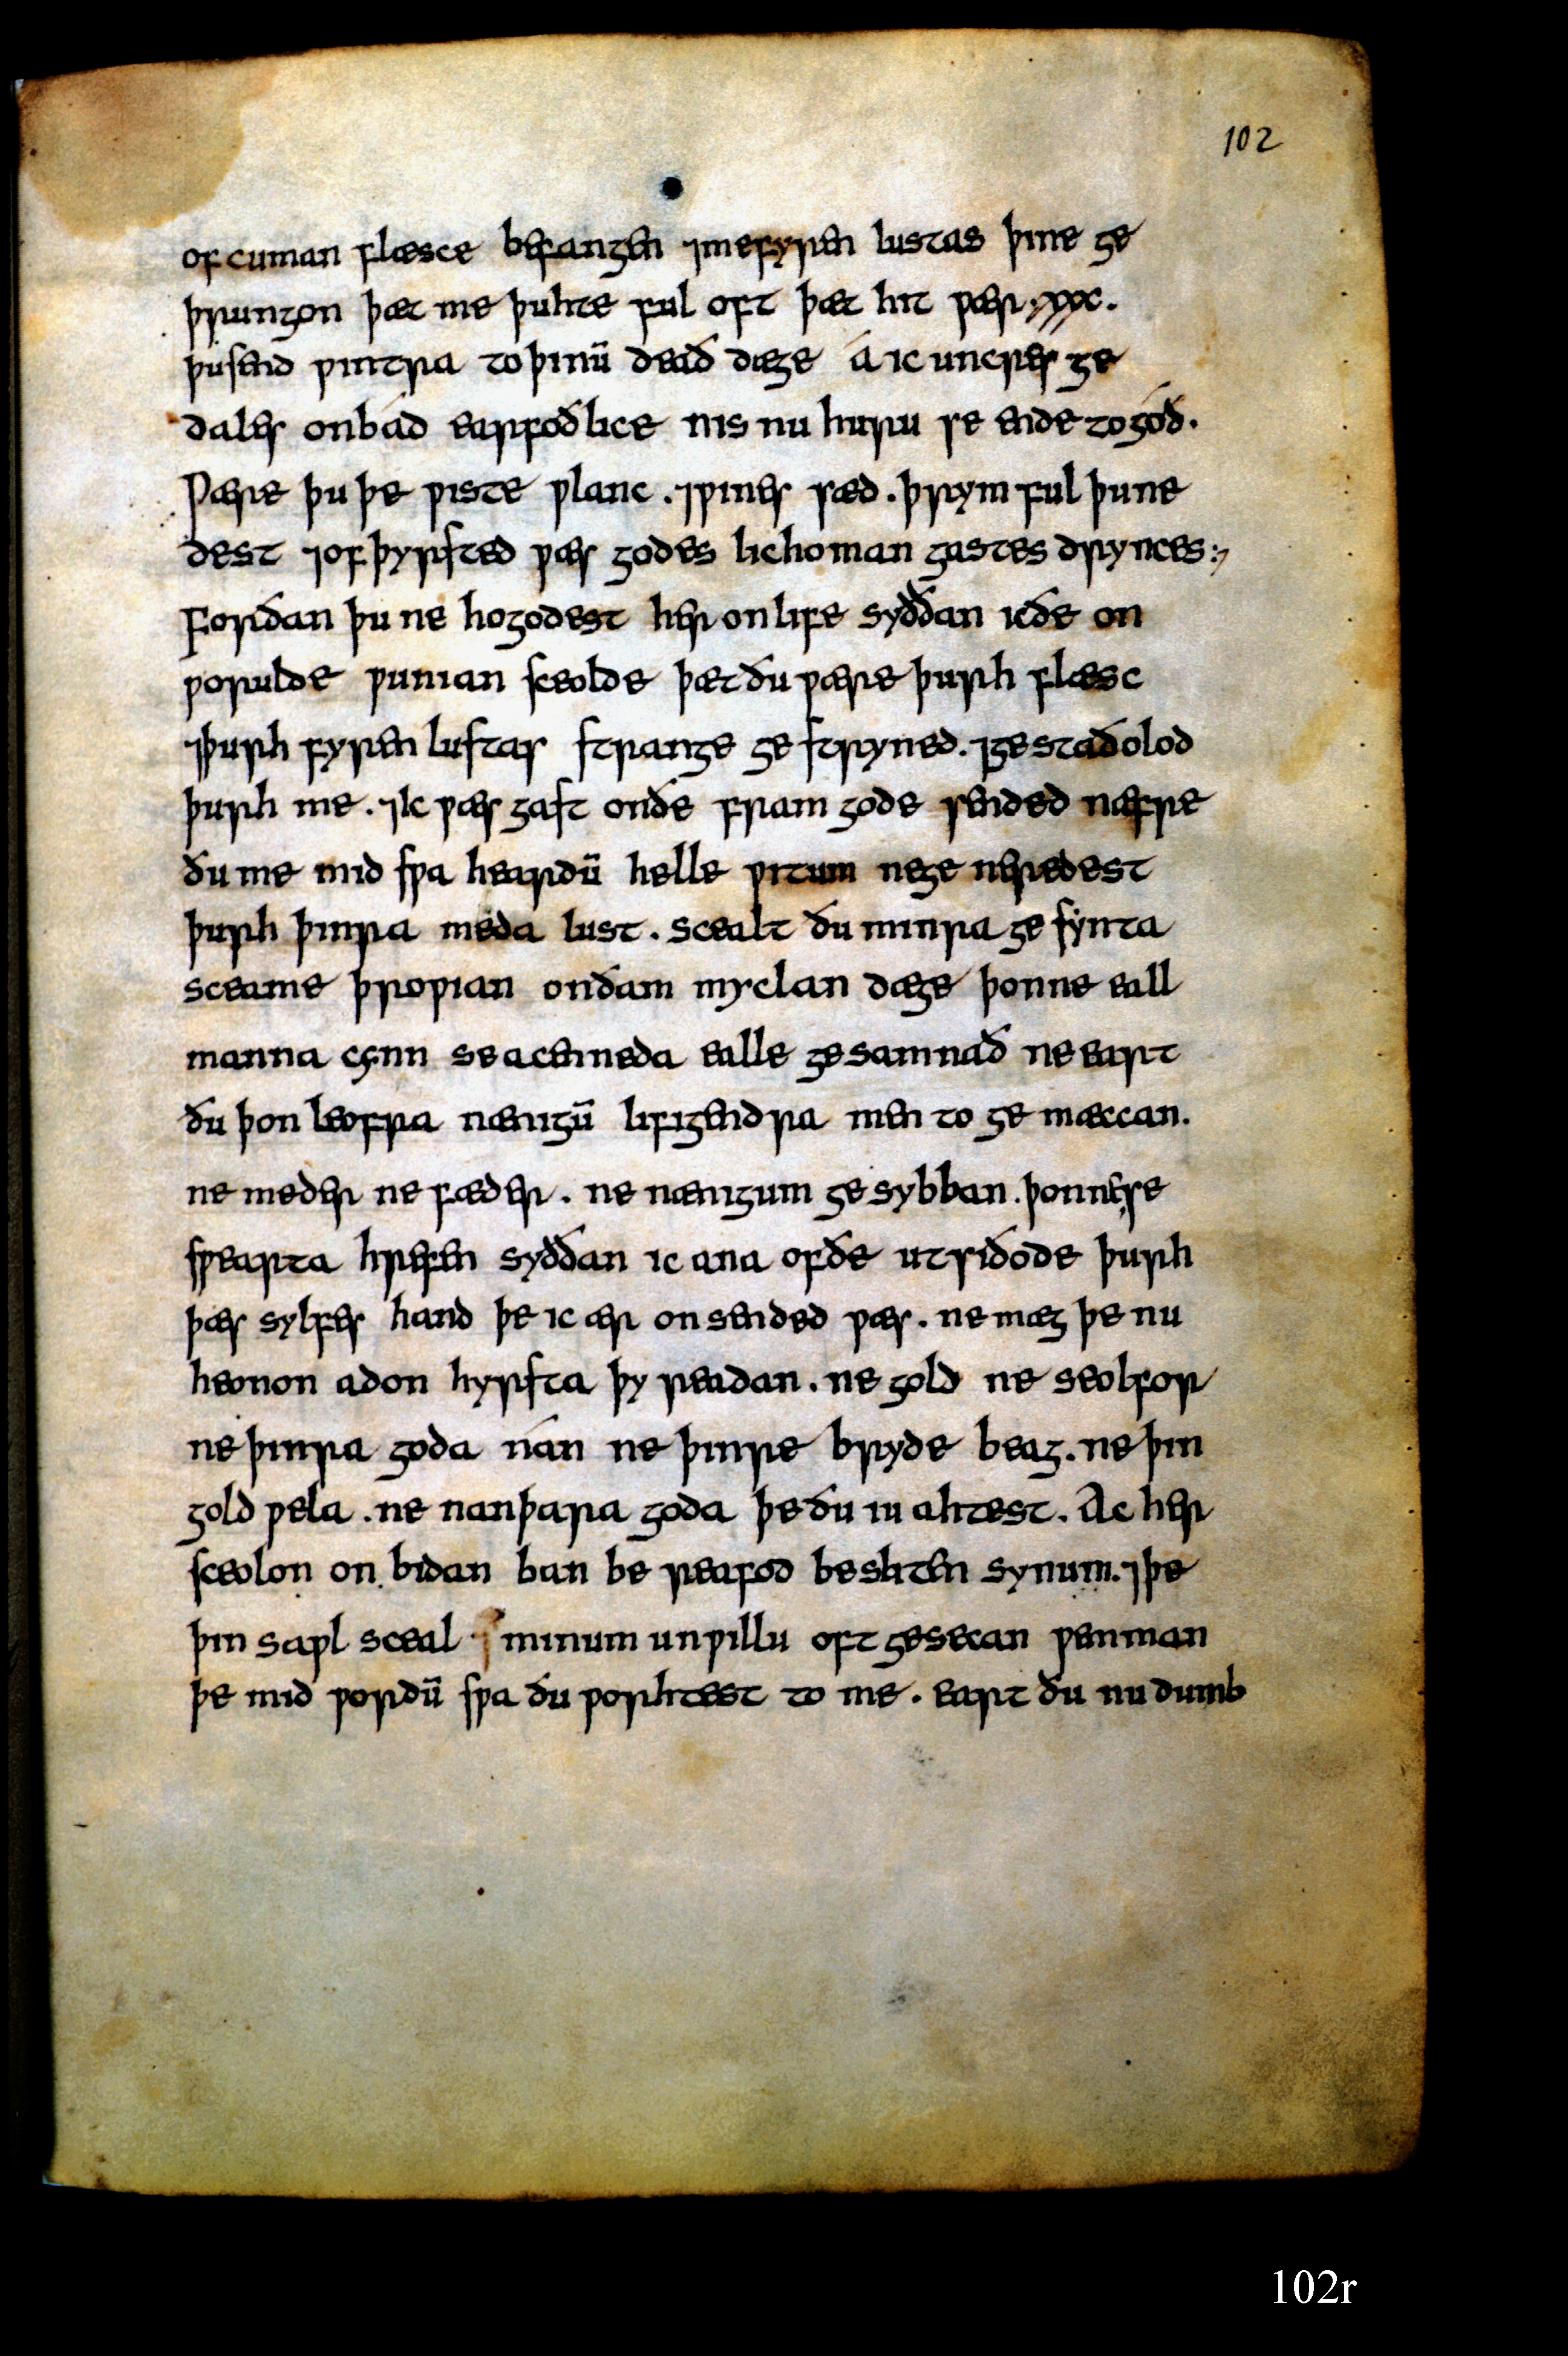 102
of cuman flæsce befangen ⁊me fyren lustas þine ge
þrungon þæt me þuhte ful oft þæt hit wær .xxx.
þusend wintra to þinū deað dæge á ic uncres ge
dales onbád earfoðlice nis nu huru se ende to góð.
Wære þu þe wiste wlanc . ⁊wines sæd . þrym ful þune
dest ⁊of þyrsted wæs godes lichoman gastes drynces :,
Forðan þu ne hogodest her on life syððan ic ðe on
worulde wunian sceolde þæt ðu wære þurh flæsc
⁊þurh fyren lustas strange ge stryned. ⁊gestaðolod
þurh me . ⁊ic wæs gast on ðe fram gode sended næfre
ðu me mid swa heardū helle witum ne ge neredest
þurh þinra meda lust . scealt ðu minra ge synta
sceame þrowian on ðam myclan dæge þonne eall
manna cynn se acenneda ealle gesamnað ne eart
ðu þon leofra nænigū lifigendra men to ge mæccan.
ne meder ne fæder . ne nænigum ge sybban . þonne se
swearta hrefen syððan ic ana of ðe ut siðode þurh
þæs sylfes hand þe ic ær on sended wæs . ne mæg þe nu
heonon adon hyrsta þy readan . ne gold ne seolfor
ne þinra goda nán ne þinre bryde beag . ne þin
gold wela . ne nan þara goda þe ðu iu ahtest . Ac her
sceolon on bidan ban be reafod besliten synum. ⁊þe
þin sawl sceal minum unwillu oft gesecan wemman
þe mid wordū swa ðu worhtest to me . eart ðu nu dumb
102r